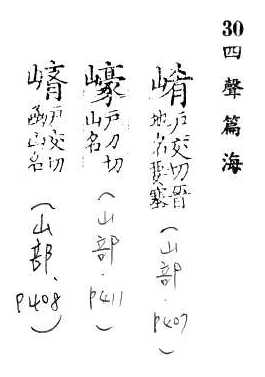 30四聲篇海
崤戶交切晉地名要塞
(山部.P407)
嶑戶刀切山名
(山部.P411)
戶交切函山名
(山部.P408)